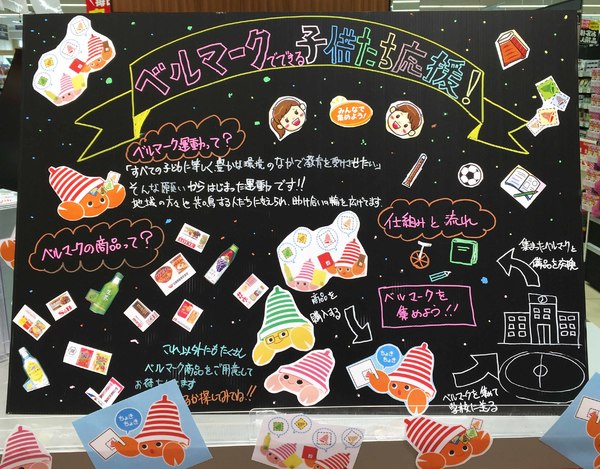 ベルマークでできる子供たち応援!
みんなで
集めよう!
ベルマーク運動って?
「すべての子どもに等しく、豊かな環境のなかで教育を受けさせたい。」
そんな願いからはじまった運動です!!
地域の方々と共の鳥する人たちに支えられ、助け合いの輪を広げてます。
ベルマークの商品って?
仕組みと流れ
商品を
購入する
ベルマークを
集めよう!!
集まったベルマークと
備品を交換
ベルマークを集めて
学校に送る
これ以外にもたくさん
ベルマーク商品をご用意して
お待ちしてます
か探してみてね!!
ちょき
ちょき
ちょき
ちょき